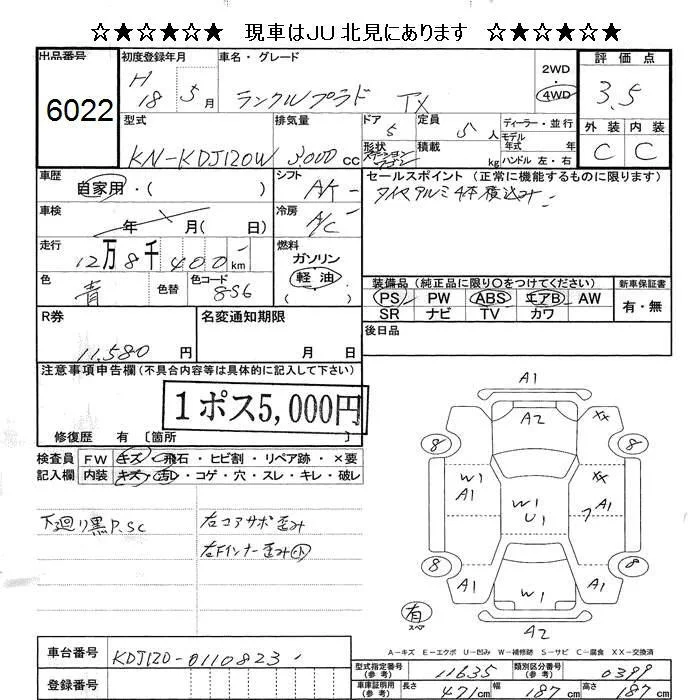 ☆★☆★☆★ 現車はJU北見にあります ☆★☆★☆★
出品番号 初度登録年月 車名・グレード 2WD 評価点
6022 H18 5月 ランクルプラド TX 4WD 3.5
型式 排気量 ドア 定員 ディーラー・並行 外装 内装
KN-KDJ120W 3000cc 5 5人 モデル年式 年 C C
形状 ステーションワゴン 積載 kg ハンドル 左・右
車歴 自家用・( ) シフト AK セールスポイント (正常に機能するものに限ります)
タイヤアルミ4本積込み
車検 年 月( 日) 冷房 A/C
走行 12万8千400km 燃料 ガソリン 軽油
色 青 色替 色コード 8S6
装備品(純正品に限り〇をつけてください) 新車保証書
PS PW ABS エアB AW 有・無
SR ナビ TV カワ
R券 名変通知期限 後日品
11,580円 月 日
注意事項申告欄(不具合内容等は具体的に記入して下さい)
1ポス5,000円
修復歴 有 〔箇所 〕
検査員 FW キズ・飛石・ヒビ割・リペア跡・×要
記入欄 内装 キズ・汚レ・コゲ・穴・スレ・キレ・破レ
下廻り黒P.SC 右コアサポ歪み
右Fインナー歪み(小)
A1
A2 XX
8 8
W1 A1 W1 U1 XX 7 A1
8 8
A1 W1 A1
有 スペア A2
A-キズ E-エクボ U-凹み W-補修跡 S-サビ C-腐食 XX-交換済
車台番号 KDJ120-0110823
登録番号
型式指定番号(参考) 11635 類別区分番号(参考) 0399
車庫証明用(参考) 長さ 471cm 幅 187cm 高さ 187cm